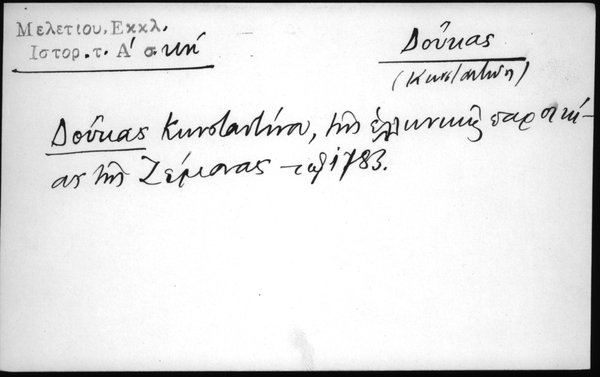 Μελετίου, Εκκλ.
Ιστορ. τ. Α' σ. κή
Δούκας
(Κωνσταντίνου)
Δούκας Κωνσταντίνου, τῆς ἑλληνικῆς παροικί-
ας τῆς Ζέμονας τῷ 1783.